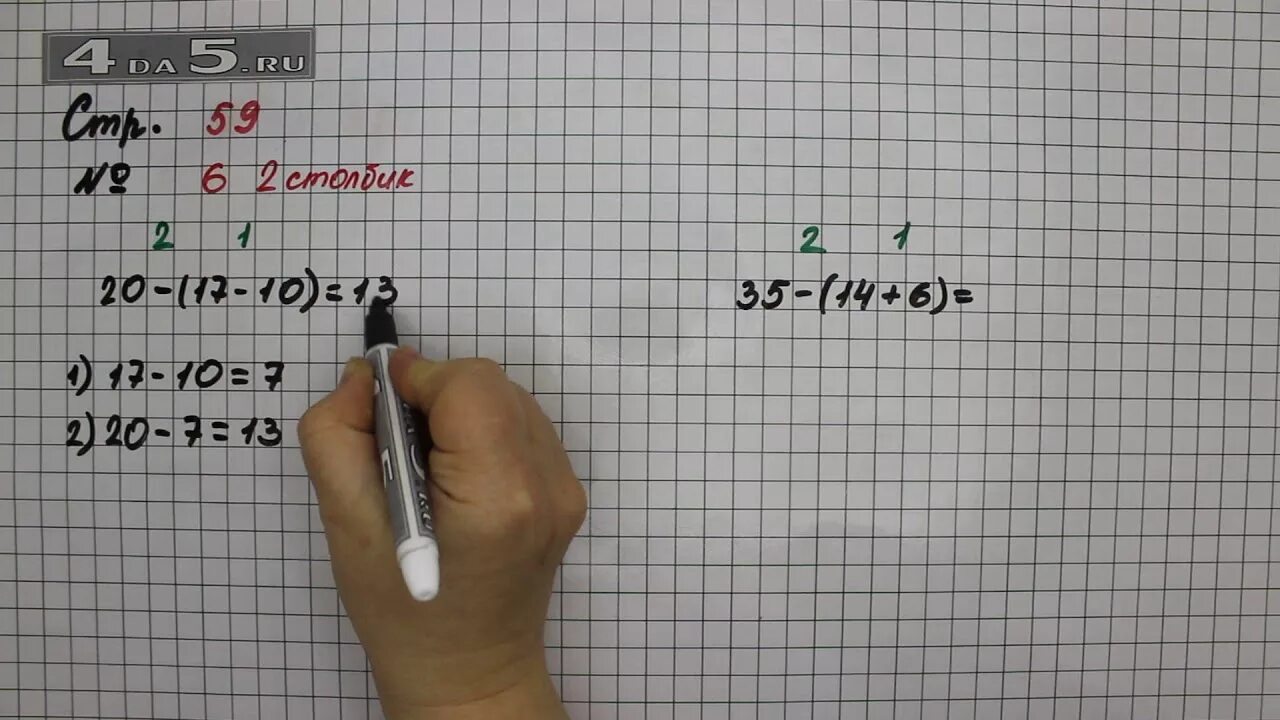 4DA5.RU
Стр. 59
№ 6 2 столбик
2 1
20-(17-10)=13
1) 17-10=7
2) 20-7=13
2 1
35-(14+6)=